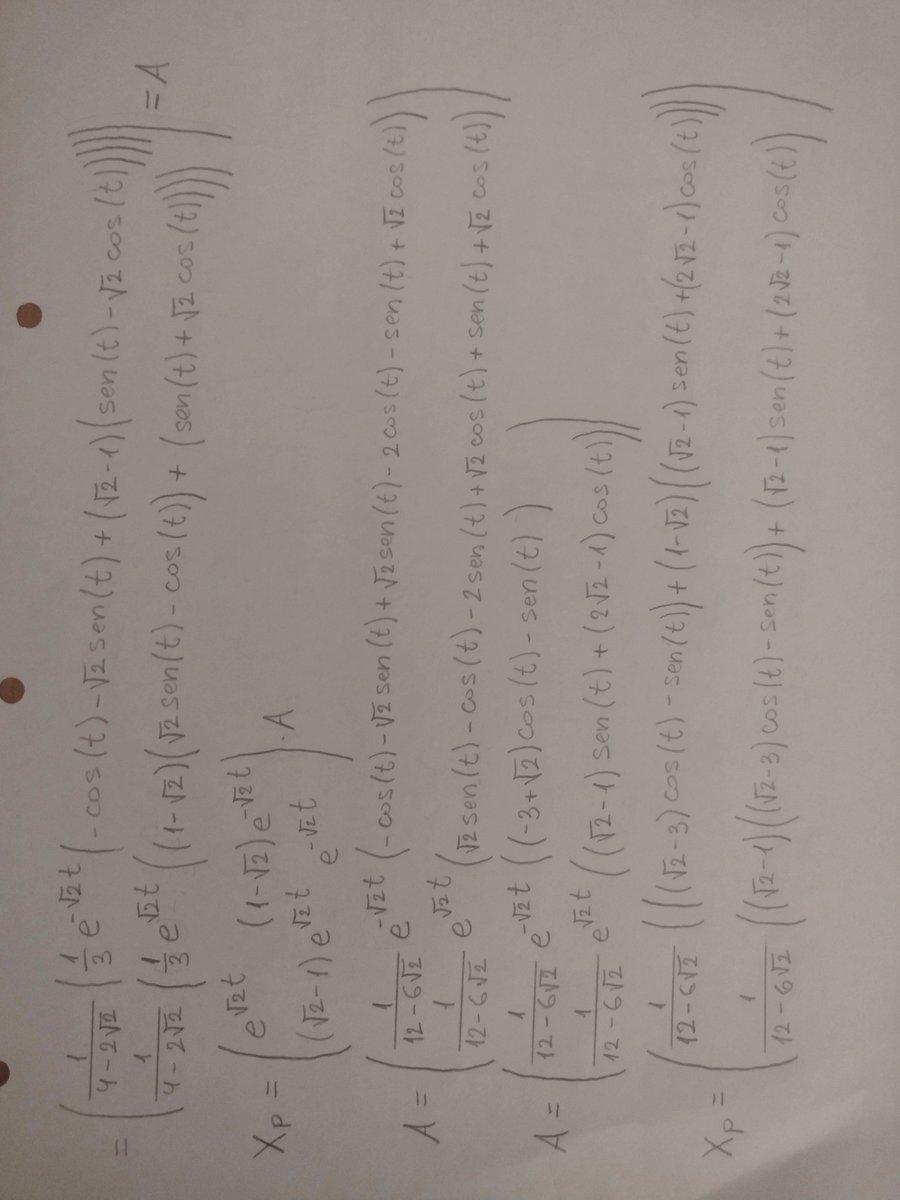 = ( 1/(4-2√2) (1/3 e^(-√2t) (-cos(t)-√2sen(t)+(√2-1)(sen(t)-√2cos(t))))))
1/(4-2√2) (1/3 e^(√2t) ((1-√2)(√2sen(t)-cos(t))+(sen(t)+√2cos(t))))) ) = A
Xp = ( e^(√2t) (1-√2)e^(-√2t)
(√2-1)e^(√2t) e^(-√2t) ) · A
A = ( 1/(12-6√2) e^(-√2t) (-cos(t)-√2sen(t)+√2sen(t)-2cos(t)-sen(t)+√2cos(t))
1/(12-6√2) e^(√2t) (√2sen(t)-cos(t)-2sen(t)+√2cos(t)+sen(t)+√2cos(t)) )
A = ( 1/(12-6√2) e^(-√2t) ((-3+√2)cos(t)-sen(t))
1/(12-6√2) e^(√2t) ((√2-1)sen(t)+(2√2-1)cos(t)) )
Xp = ( 1/(12-6√2) (((√2-3)cos(t)-sen(t))+(1-√2)((√2-1)sen(t)+(2√2-1)cos(t))))
1/(12-6√2) ((√2-1)((√2-3)cos(t)-sen(t))+(√2-1)sen(t)+(2√2-1)cos(t)) )